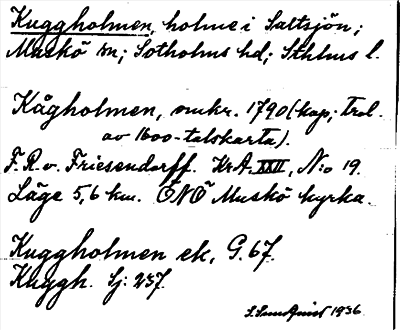 Kuggholmen, holme i Saltsjön;
Muskö sn; Sotholms hd; Sthlms l.
Kågholmen, omkr. 1790 (kop; trol.
av 1600-talskarta).
F. R. v. Friesendorff. KrA XXII, N:o 19.
Läge 5,6 km. ÖNÖ Muskö kyrka.
Kuggholmen ek, G. 67.
Kuggh. Sj: 257.
1936